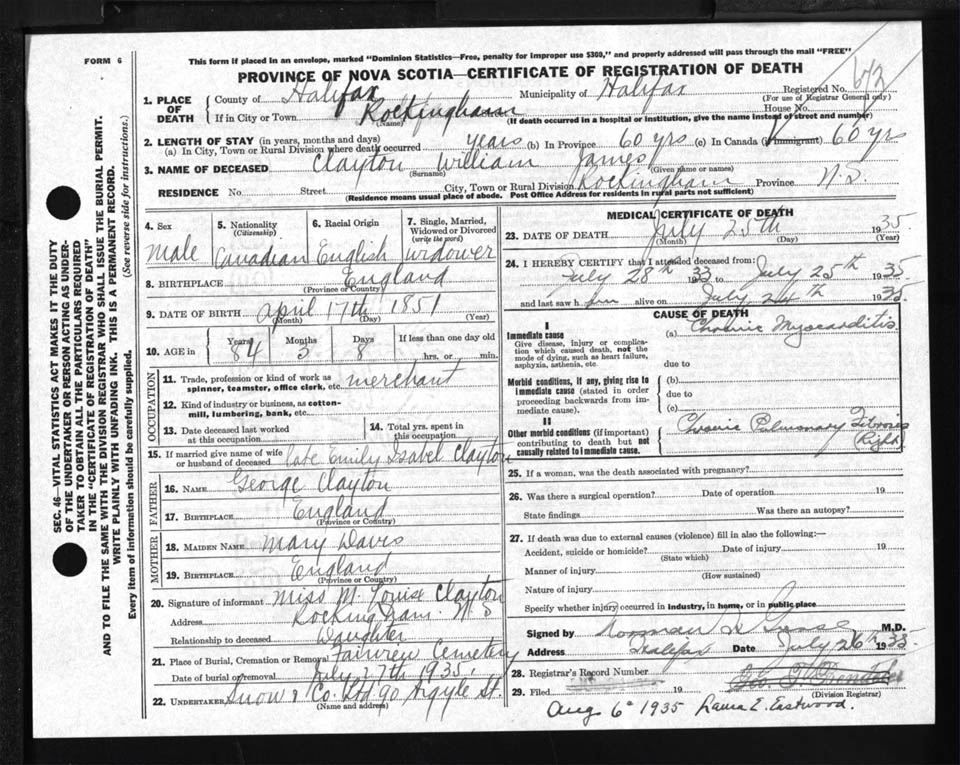 FORM 6
This form if placed in an envelope, marked "Dominion Statistics—Free, penalty for improper use $300," and properly addressed will pass through the mail "FREE"
PROVINCE OF NOVA SCOTIA—CERTIFICATE OF REGISTRATION OF DEATH
Registered No.
(For use of Registrar General only)
1. PLACE OF DEATH
County of Halifax Municipality of Halifax
House No.
If in City or Town Rockingham
(Name) (If death occurred in a hospital or institution, give the name instead of street and number)
2. LENGTH OF STAY (in years, months and days)
(a) In City, Town or Rural Division where death occurred years (b) In Province 60 yrs (c) In Canada (if immigrant) 60 yrs
3. NAME OF DECEASED Clayton William James
(Surname) (Given name or names)
RESIDENCE No. Street City, Town or Rural Division Rockingham Province N.S.
(Residence means usual place of abode. Post Office Address for residents in rural parts not sufficient)
SEC. 46—VITAL STATISTICS ACT MAKES IT THE DUTY
OF THE UNDERTAKER OR PERSON ACTING AS UNDER-
TAKER TO OBTAIN ALL THE PARTICULARS REQUIRED
IN THE "CERTIFICATE OF REGISTRATION OF DEATH"
AND TO FILE THE SAME WITH THE DIVISION REGISTRAR WHO SHALL ISSUE THE BURIAL PERMIT.
WRITE PLAINLY WITH UNFADING INK. THIS IS A PERMANENT RECORD.
Every item of information should be carefully supplied. (See reverse side for instructions.)
4. Sex
male
5. Nationality
(Citizenship)
Canadian
6. Racial Origin
English
7. Single, Married, Widowed or Divorced
(write the word)
widower
8. BIRTHPLACE England
(Province or Country)
9. DATE OF BIRTH April 17th 1851
(Month) (Day) (Year)
10. AGE in
Years 84
Months 3
Days 8
If less than one day old
hrs. or min.
OCCUPATION
11. Trade, profession or kind of work as spinner, teamster, office clerk, etc. merchant
12. Kind of industry or business, as cotton-mill, lumbering, bank, etc.
13. Date deceased last worked at this occupation
14. Total yrs. spent in this occupation
15. If married give name of wife or husband of deceased late Emily Isabel Clayton
FATHER
16. NAME George Clayton
17. BIRTHPLACE England
(Province or Country)
MOTHER
18. MAIDEN NAME Mary Davis
19. BIRTHPLACE England
(Province or Country)
20. Signature of informant Miss M. Louise Clayton
Address Rockingham N.S
Relationship to deceased Daughter
21. Place of Burial, Cremation or Removal Fairview Cemetery
Date of burial or removal July 27th 1935.
22. UNDERTAKER Snow & Co. Ltd 90 Argyle St.
(Name and address)
MEDICAL CERTIFICATE OF DEATH
23. DATE OF DEATH July 25th 1935
(Month) (Day) (Year)
24. I HEREBY CERTIFY that I attended deceased from:
July 28th 1933 to July 25th 1935
and last saw him alive on July 24th 1935.
CAUSE OF DEATH
I
Immediate cause
Give disease, injury or complication which caused death, not the mode of dying, such as heart failure, asphyxia, asthenia, etc.
(a) Chronic Myocarditis
due to
Morbid conditions, if any, giving rise to immediate cause (stated in order proceeding backwards from immediate cause).
(b)
due to
(c)
II
Other morbid conditions (if important) contributing to death but not causally related to immediate cause.
Chronic Pulmonary Fibrosis
Right
25. If a woman, was the death associated with pregnancy?
26. Was there a surgical operation? Date of operation 19
State findings Was there an autopsy?
27. If death was due to external causes (violence) fill in also the following:—
Accident, suicide or homicide? Date of injury 19
(State which)
Manner of injury
(How sustained)
Nature of injury
Specify whether injury occurred in industry, in home, or in public place
Signed by Norman M.D.
Address Halifax Date July 26th 1935
28. Registrar's Record Number
29. Filed 19
(Division Registrar)
Aug 6 1935 Laura E. Eastwood.